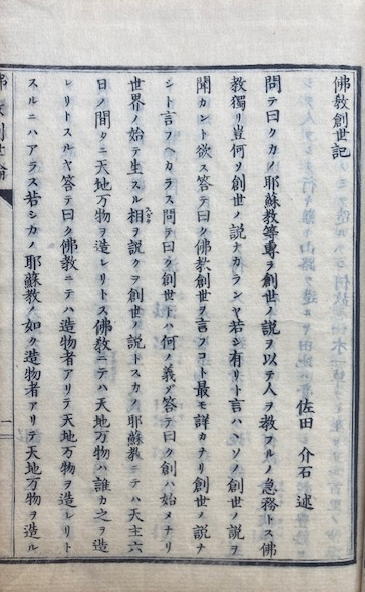 佛教創世記
佐田介石述
問テ曰クカノ耶蘇教等專ヲ創世ノ説ヲ以テ人ヲ教フルノ急務トス佛
教獨リ豈何ソ創世ノ説ナカランヤ若シ有リト言ハヽソノ創世ノ説ヲ
聞カント欲ス答テ曰ク佛教創世ヲ言フコト最モ詳カナリ創世ノ説ナ
シト言フヘカラス問テ曰ク創世トハ何ノ義ゾ答テ曰ク創ハ始メナリ
世界ノ始テ生スル相ヲ説クヲ創世ノ説トスカノ耶蘇教ニテハ天主六
日ノ間タニ天地万物ヲ造レリトス佛教ニテハ天地万物ハ誰カ之ヲ造
レリトスルヤ答テ曰ク佛教ニテハ造物者アリテ天地万物ヲ造レリト
スルニハアラス若シカノ耶蘇教ノ如ク造物者アリテ天地万物ヲ造ル
一